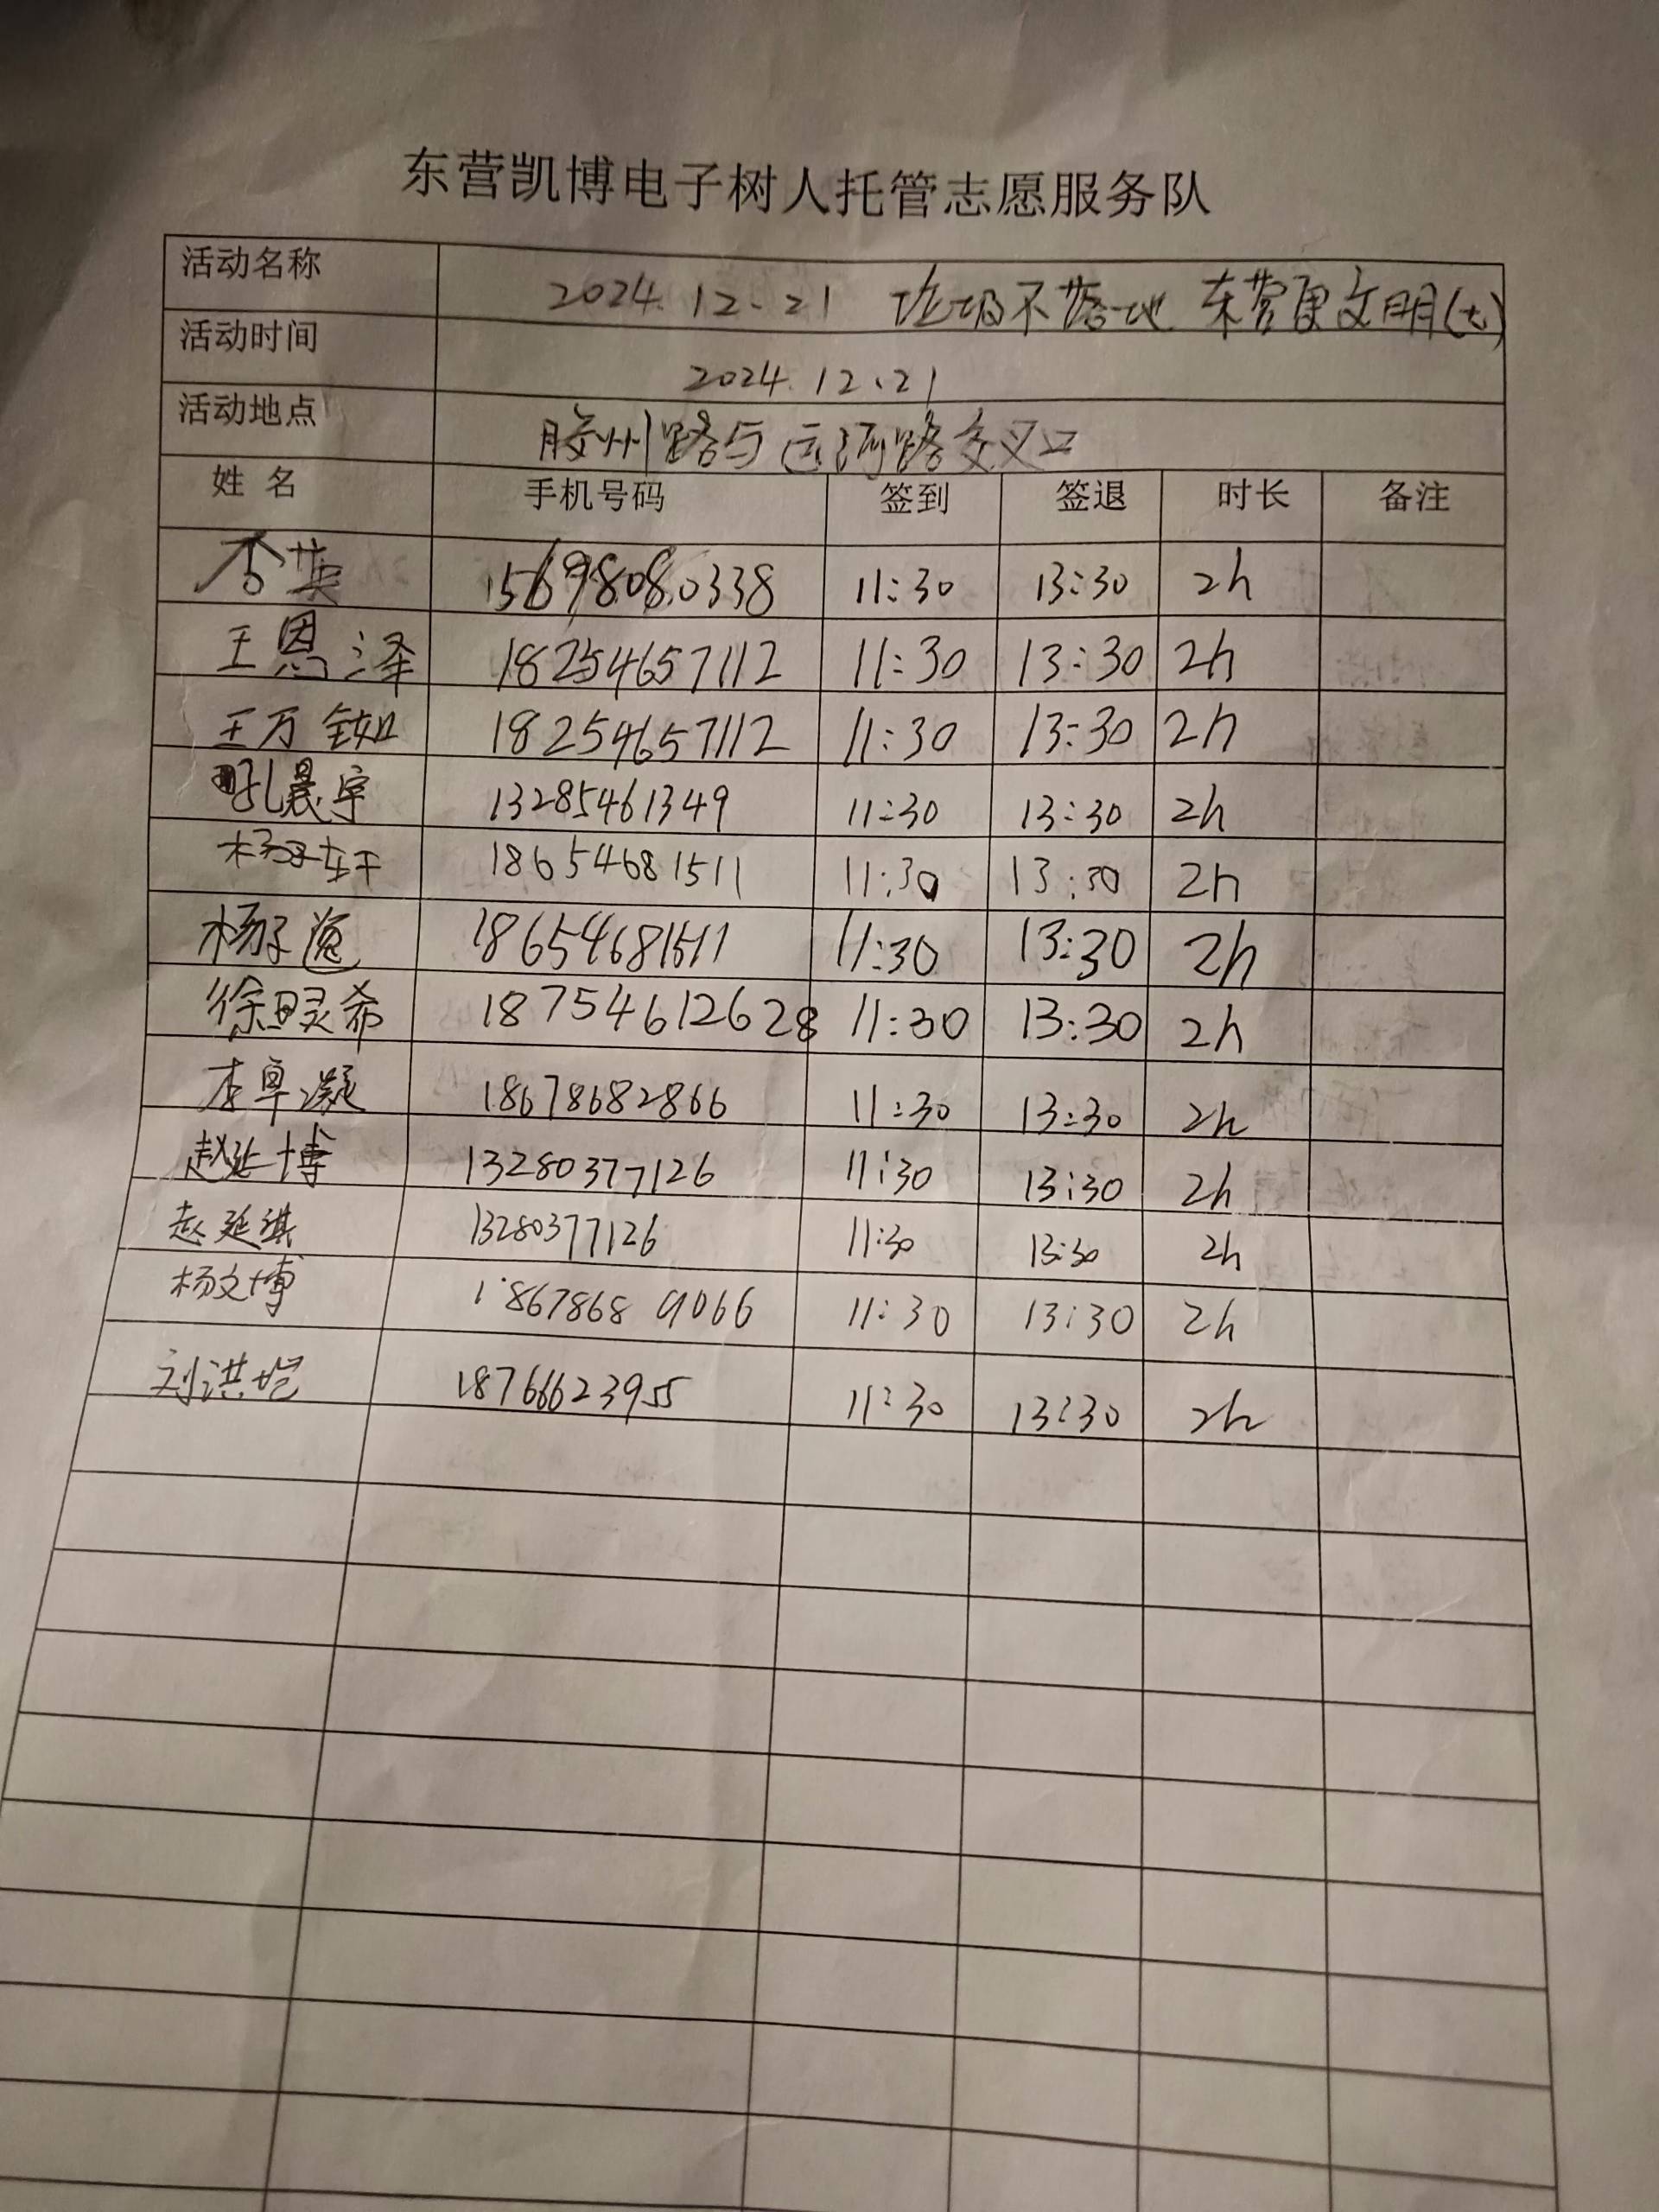 东营凯博电子树人托管志愿服务队
活动名称 2024.12.21 垃圾不落地 东营更文明(七)
活动时间 2024.12.21
活动地点 胶州路与运河路交叉口
姓 名 手机号码 签到 签退 时长 备注
英 15698080338 11:30 13:30 2h
王恩泽 18254657112 11:30 13:30 2h
王万 18254657112 11:30 13:30 2h
孔晨宇 13285461349 11:30 13:30 2h
杨子轩 18654681511 11:30 13:30 2h
杨子逸 18654681511 11:30 13:30 2h
徐 灵希 18754612628 11:30 13:30 2h
李卓凝 18678682866 11:30 13:30 2h
赵延博 13280377126 11:30 13:30 2h
赵延淇 13280377126 11:30 13:30 2h
杨文博 18678689066 11:30 13:30 2h
刘洪恺 18766623955 11:30 13:30 2h